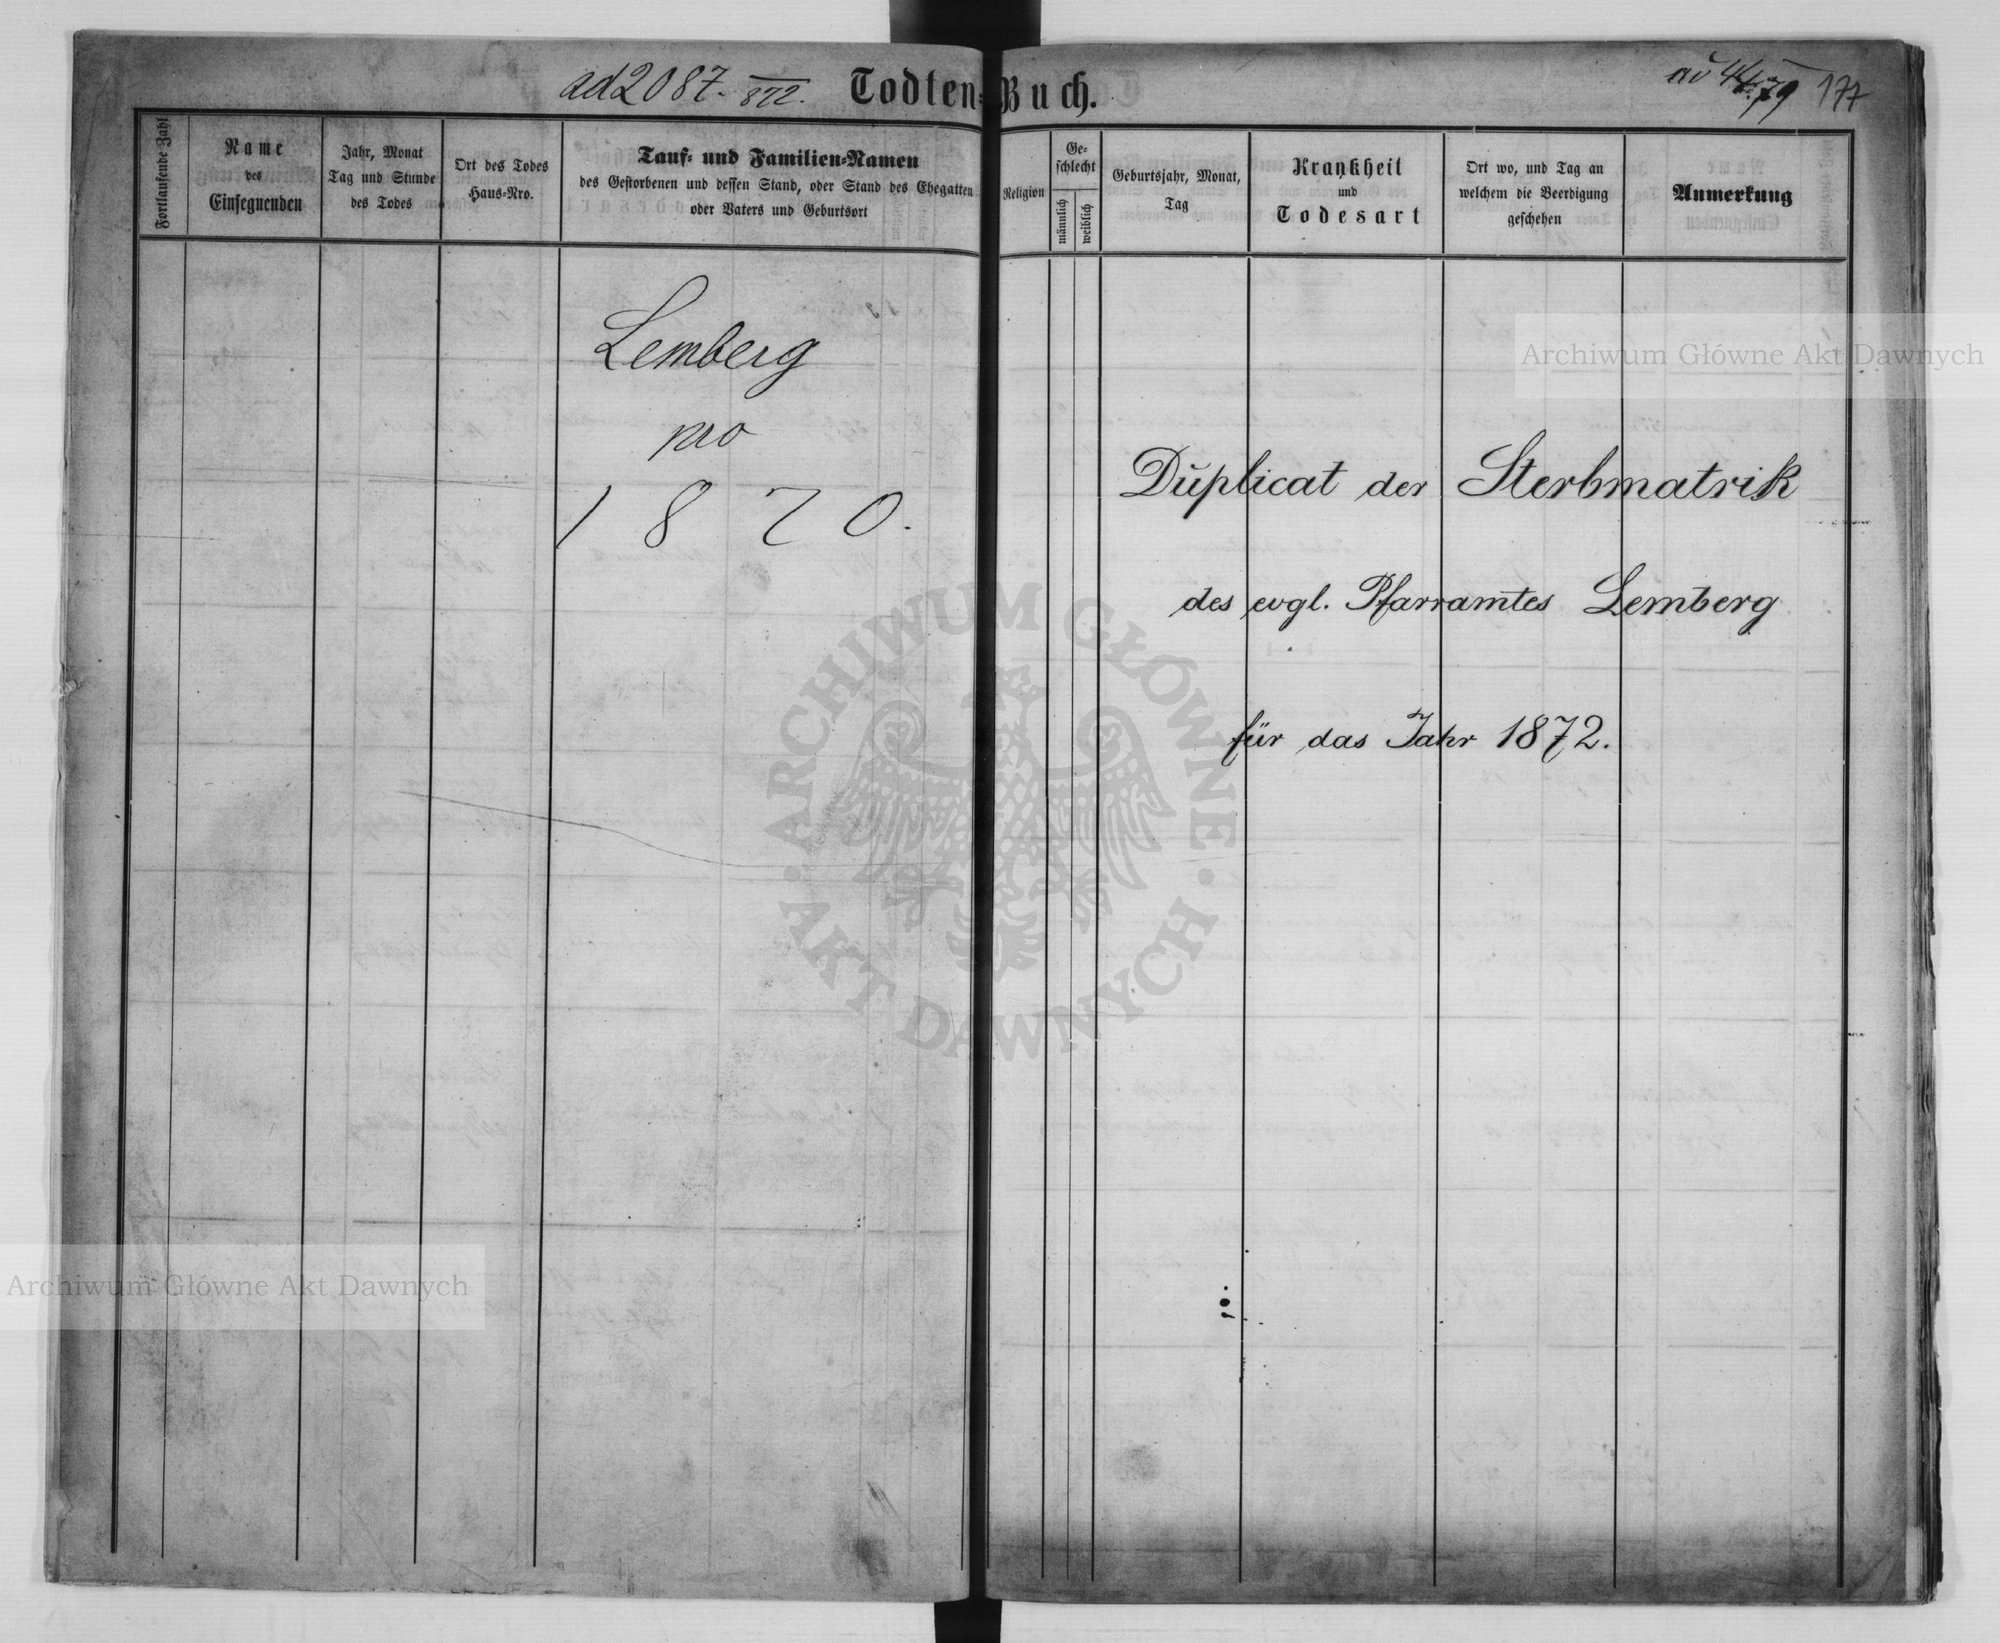 ad 2087. 872.
Todten-Buch.
177
Fortlaufende Zahl
Name
des
Einsegnenden
Jahr, Monat
Tag und Stunde
des Todes
Ort des Todes
Haus-Nro.
Tauf- und Familien-Namen
des Gestorbenen und dessen Stand, oder Stand des Ehegatten
oder Vaters und Geburtsort
Religion
Ge-
schlecht
männlich
weiblich
Geburtsjahr, Monat,
Tag
Krankheit
und
Todesart
Ort wo, und Tag an
welchem die Beerdigung
geschehen
Anmerkung
Lemberg
pro
1870.
Duplicat der Sterbmatrik
des evgl. Pfarramtes Lemberg
für das Jahr 1872.
Archiwum Główne Akt Dawnych
ARCHIWUM GŁÓWNE
AKT DAWNYCH
Archiwum Główne Akt Dawnych